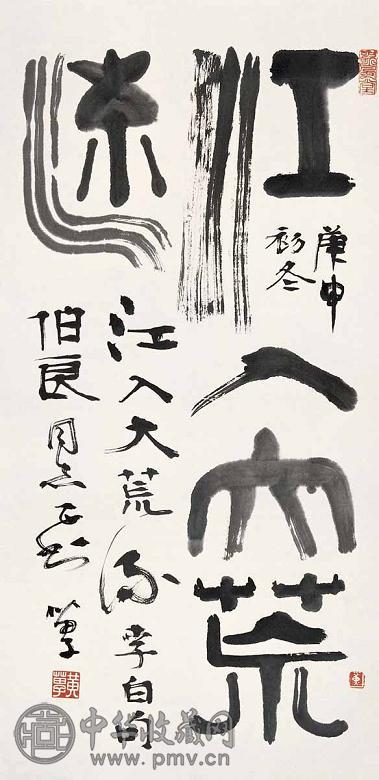 江入大荒
流
庚申
初冬
江入大荒流 李白句
伯良同志正
中华收藏网
www.pmv.cn